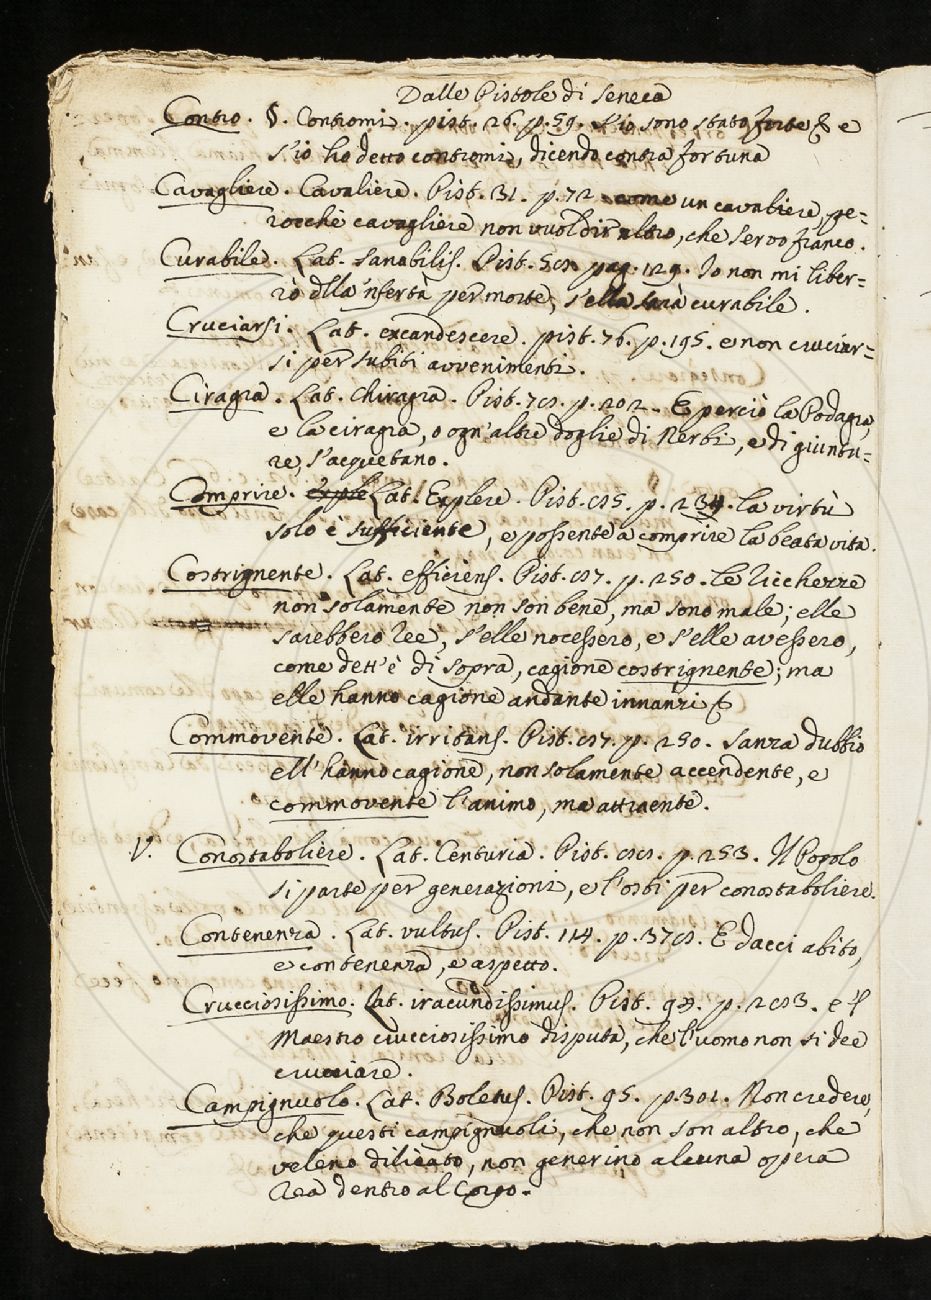 Dalle Pistole di Seneca
Contro. §. Contromi. pist. 26. p. 59. S'io sono stato forte &c e
s'io ho detto contromi, dicendo contra fortuna
Cavagliere. Cavaliere. Pist. 31. p. 72. come un cavaliere, pe=
rocchè cavagliere non vuol dir altro, che servo franco.
Curabile. Lat. Sanabilis. Pist. 58. pag. 129. Io non mi liber=
rò dlla 'nfertà per morte, s'ella sarà curabile.
Cruciarsi. Lat. excandescere. pist. 76. p. 195. e non cruciar=
si per subiti avvenimenti.
Ciragra. Lat. Chiragra. Pist. 78. p. 202. E perciò la Podagra,
e la ciragra, o ogn'altre doglie di Nerbi, e di giuntu=
re, s'acquetano.
Comprire. exple Lat. Explere. Pist. 85. p. 234. la virtù
solo è sufficiente, e possente a comprire la beata vita.
Costrignente. Lat. efficiens. Pist. 87. p. 250. Le ricchezze
non solamente non son bene, ma sono male; elle
sarebbero ree, s'elle nocessero, e s'elle avessero,
come dett'è di sopra, cagione costrignente; ma
elle hanno cagione andante innanzi &c
Commovente. Lat. irritans. Pist. 87. p. 250. Sanza dubbio
ell'hanno cagione, non solamente accendente, e
commovente l'animo, ma attraente.
V. Conostaboliere. Lat. Centuria. Pist. 88. p. 253. Il Popolo
si parte per generazioni, e l'osti per conostaboliere.
Contenenza. Lat. vultus. Pist. 114. p. 378. E dacci abito,
e contenenza, e aspetto.
Crucciosissimo. Lat. iracundissimus. Pist. 94. p. 283. e 'l
Maestro crucciosissimo disputa, che l'uomo non si dee
crucciare.
Campignuolo. Lat. Boletus. Pist. 95. p. 301. Non credere,
che questi campignuoli, che non son altro, che
veleno dilicato, non generino alcuna opera
rea dentro al Corpo.